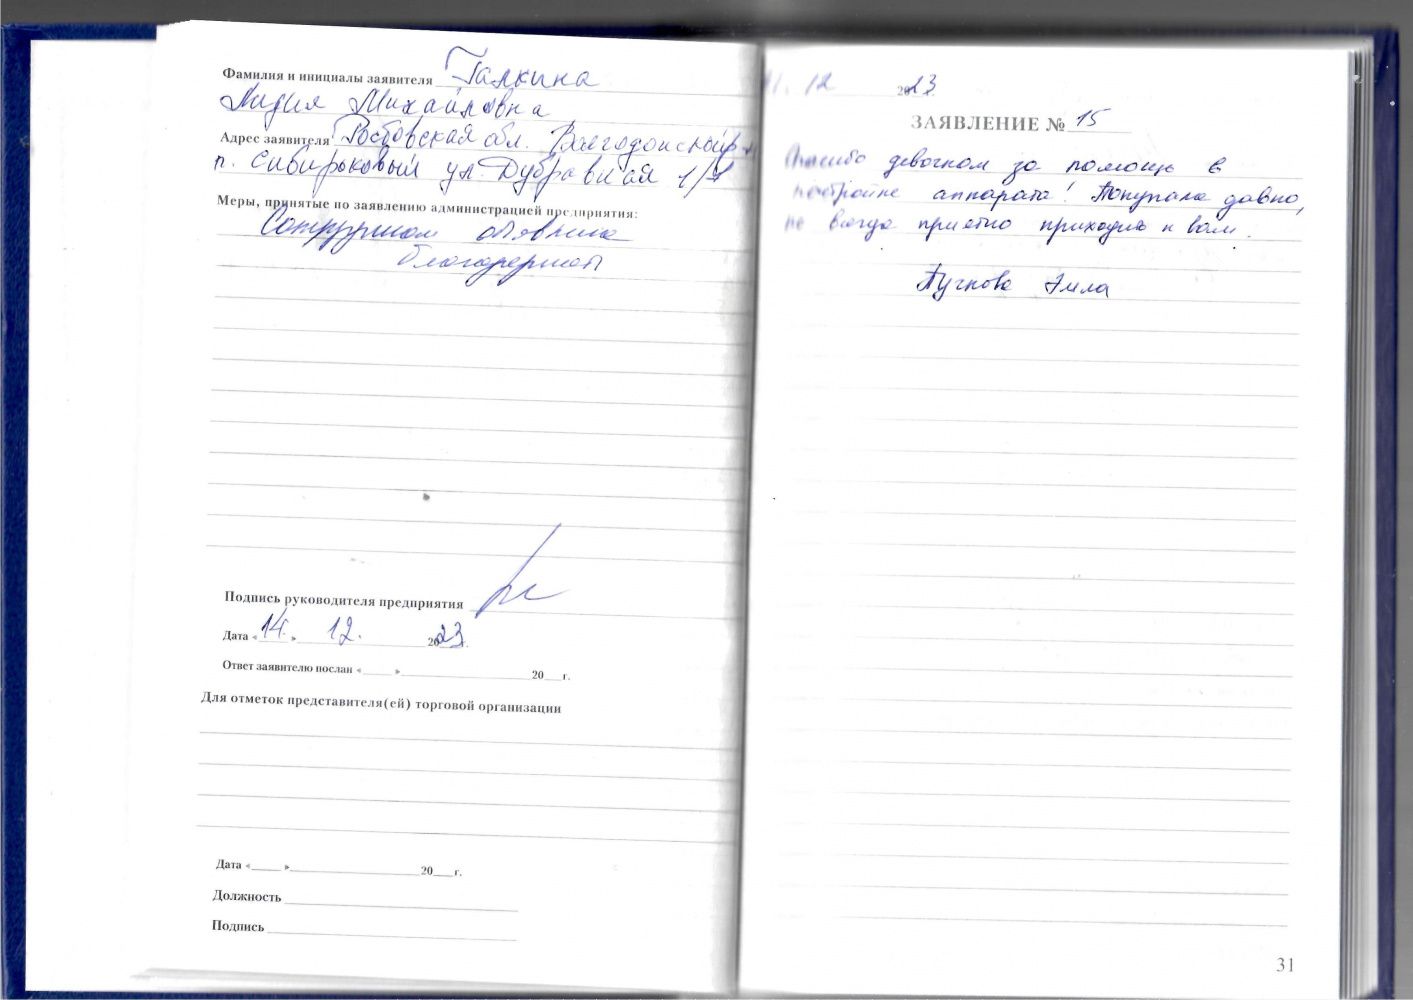 Фамилия и инициалы заявителя Галкина
Лидия Михайловна
Адрес заявителя Ростовская обл. Волгодонской р-н
п. Сибирьковый ул. Дубравная 1/1
Меры, принятые по заявлению администрацией предприятия:
Сотрудникам объявлена
благодарность
Подпись руководителя предприятия
Дата «14» 12. 2023г.
Ответ заявителю послан «____ »____ 20___г.
Для отметок представителя(ей) торговой организации
Дата «____ »____ 20___г.
Должность
Подпись
12 2023
ЗАЯВЛЕНИЕ № 15
Спасибо девочкам за помощь в
настройке аппарата! Покупала давно,
но всегда приятно приходить к вам.
Пучкова
31